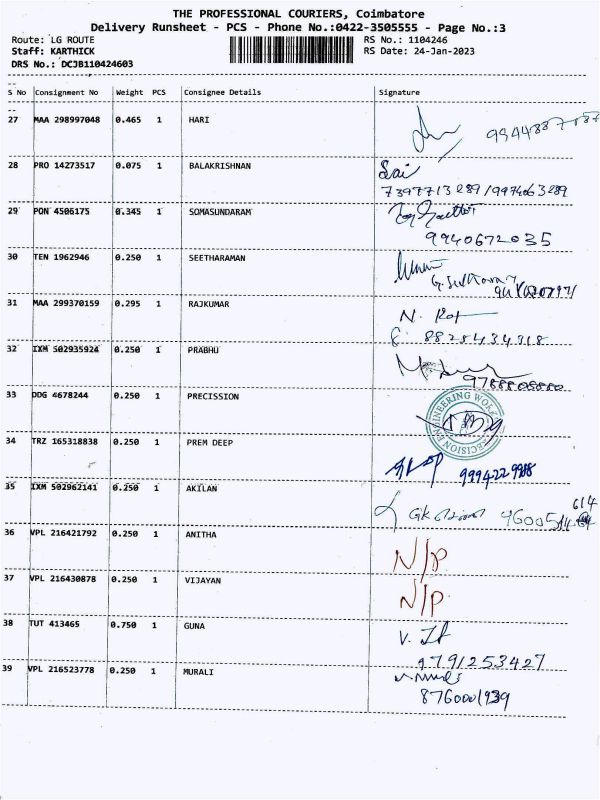 THE PROFESSIONAL COURIERS, Coimbatore
Delivery Runsheet - PCS - Phone No.:0422-3505555 - Page No.:3
Route: LG ROUTE RS No.: 1104246
Staff: KARTHICK RS Date: 24-Jan-2023
DRS No.: DCJB110424603
S No Consignment No Weight PCS Consignee Details Signature
27 MAA 298997048 0.465 1 HARI
28 PRO 14273517 0.075 1 BALAKRISHNAN Sai
29 PON 4506175 0.345 1 SOMASUNDARAM
9940672035
30 TEN 1962946 0.250 1 SEETHARAMAN
31 MAA 299370159 0.295 1 RAJKUMAR N.
32 IXM 502935924 0.250 1 PRABHU
9788808880
33 DDG 4678244 0.250 1 PRECISSION
ENGINEERING WORK
34 TRZ 165318838 0.250 1 PREM DEEP
9994229988
35 IXM 502962141 0.250 1 AKILAN
614
GK
36 VPL 216421792 0.250 1 ANITHA N/P
37 VPL 216430878 0.250 1 VIJAYAN N/P.
38 TUT 413465 0.750 1 GUNA V.
9791253427
39 VPL 216523778 0.250 1 MURALI
8760001939